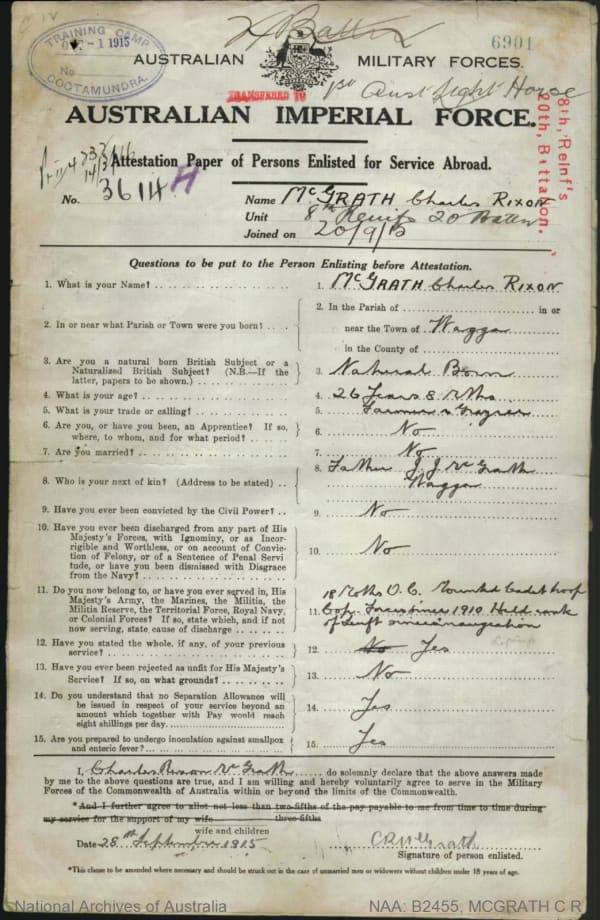 TRAINING CAMP
1 1915
No
COOTAMUNDRA.
6901
AUSTRALIAN MILITARY FORCES.
TRANSFERED TO
1st Aust Light Horse
AUSTRALIAN IMPERIAL FORCE.
8th, Reinf's
20th, Battalion.
Attestation Paper of Persons Enlisted for Service Abroad.
No. 3614 H
Name McGRATH Charles RIXON
Unit 8th Reinfs 20 Battn
Joined on 20/9/15
Questions to be put to the Person Enlisting before Attestation.
1. What is your Name? 1. McGRATH Charles RIXON
2. In or near what Parish or Town were you born? 2. In the Parish of in or
near the Town of Wagga
in the County of
3. Are you a natural born British Subject or a
Naturalized British Subject? (N.B.—If the
latter, papers to be shown.) 3. Natural Born
4. What is your age? 4. 26 Years 8 Mths
5. What is your trade or calling? 5. Farmer & Grazier
6. Are you, or have you been, an Apprentice? If so,
where, to whom, and for what period? 6. No
7. Are you married? 7. No
8. Who is your next of kin? (Address to be stated) 8. Father J J McGrath
Wagga
9. Have you ever been convicted by the Civil Power? 9. No
10. Have you ever been discharged from any part of His
Majesty's Forces, with Ignominy, or as Incor-
rigible and Worthless, or on account of Convic-
tion of Felony, or of a Sentence of Penal Servi-
tude, or have you been dismissed with Disgrace
from the Navy? 10. No
11. Do you now belong to, or have you ever served in, His
Majesty's Army, the Marines, the Militia, the
Militia Reserve, the Territorial Force, Royal Navy,
or Colonial Forces? If so, state which, and if not
now serving, state cause of discharge 11. 18 Mths O.C. Mounted Cadet troop
1910 Held rank
of Lieut since inauguration
12. Have you stated the whole, if any, of your previous
service? 12. No Yes
13. Have you ever been rejected as unfit for His Majesty's
Service? If so, on what grounds? 13. No
14. Do you understand that no Separation Allowance will
be issued in respect of your service beyond an
amount which together with Pay would reach
eight shillings per day. 14. Yes
15. Are you prepared to undergo inoculation against smallpox
and enteric fever? 15. Yes
I, Charles Rixon McGrath do solemnly declare that the above answers made
by me to the above questions are true, and I am willing and hereby voluntarily agree to serve in the Military
Forces of the Commonwealth of Australia within or beyond the limits of the Commonwealth.
*And I further agree to allot not less than two-fifths of the pay payable to me from time to time during
three-fifths
my service for the support of my wife
wife and children
Date 28th September 1915 C R McGrath
Signature of person enlisted.
*This clause to be amended where necessary and should be struck out in the case of unmarried men or widowers without children under 18 years of age.
National Archives of Australia NAA: B2455, MCGRATH C R